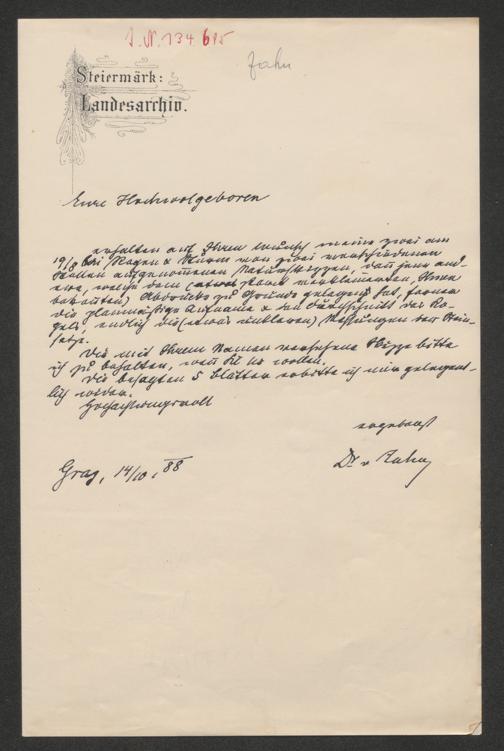 I.N. 134.615
Zahn
Steiermärk:
Landesarchiv.
Eure Hochwolgeboren
erhalten auf Ihren Wunsch meine zwei am
19/8 bei Regen & Sturm von zwei verschiedenen
Stellen aufgenommenen Naturskizzen, dann jene
welche dem
bekannten) Abdrucke zu Grunde gelegen hat, ferner
die planmässige Aufnahme & den Durchschnitt des
gels, endlich die Messungen der Stein-
sätze.
Die mit Ihrem Namen versehene Skizze bitte
ich zu behalten, wenn Sie sie wollen.
Die besagten 5 Blätter erbitte ich mir gelegent-
lich wieder.
Hochachtungsvoll
ergebenst
Graz, 14/10, 88
Dr v Zahn